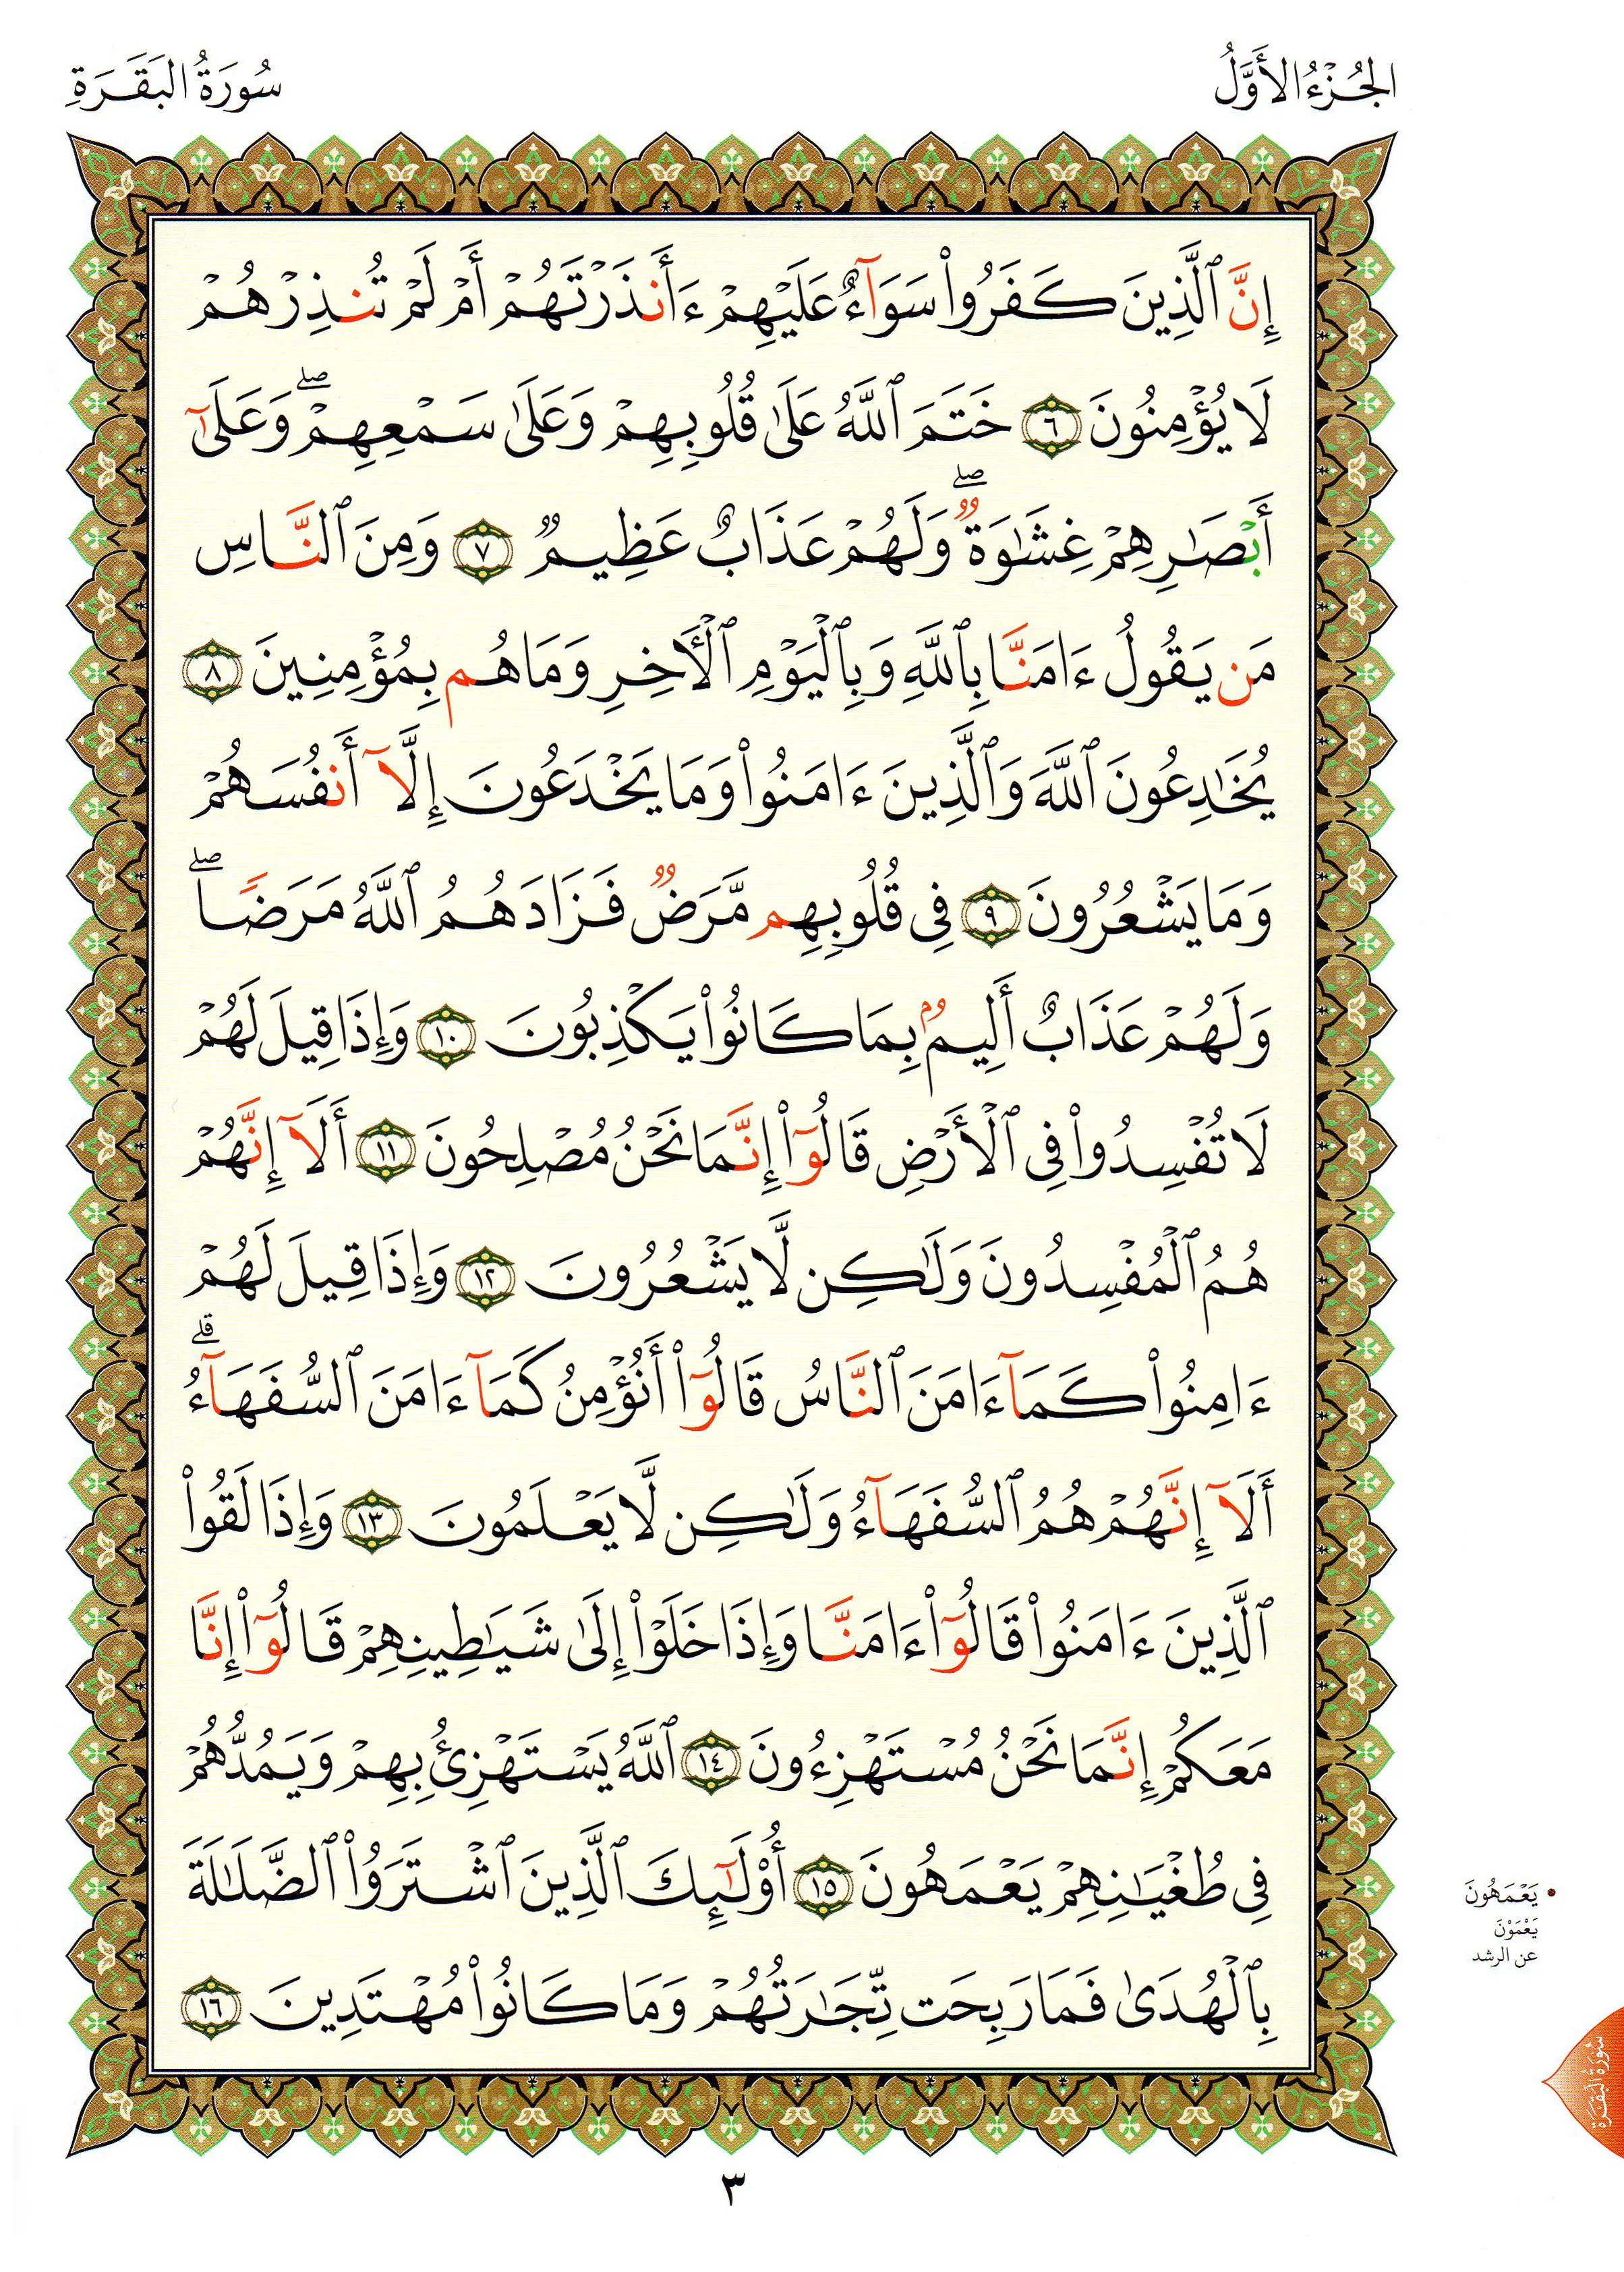 الجُزْءُ الأَوَّلُ
سُورَةُ البَقَرَةِ
إِنَّ ٱلَّذِينَ كَفَرُوا۟ سَوَآءٌ عَلَيْهِمْ ءَأَنذَرْتَهُمْ أَمْ لَمْ تُنذِرْهُمْ
لَا يُؤْمِنُونَ ٦ خَتَمَ ٱللَّهُ عَلَىٰ قُلُوبِهِمْ وَعَلَىٰ سَمْعِهِمْ ۖ وَعَلَىٰٓ
أَبْصَٰرِهِمْ غِشَٰوَةٌ ۖ وَلَهُمْ عَذَابٌ عَظِيمٌ ٧ وَمِنَ ٱلنَّاسِ
مَن يَقُولُ ءَامَنَّا بِٱللَّهِ وَبِٱلْيَوْمِ ٱلْأَخِرِ وَمَا هُم بِمُؤْمِنِينَ ٨
يُخَٰدِعُونَ ٱللَّهَ وَٱلَّذِينَ ءَامَنُوا۟ وَمَا يَخْدَعُونَ إِلَّآ أَنفُسَهُمْ
وَمَا يَشْعُرُونَ ٩ فِى قُلُوبِهِم مَّرَضٌ فَزَادَهُمُ ٱللَّهُ مَرَضًا ۖ
وَلَهُمْ عَذَابٌ أَلِيمٌۢ بِمَا كَانُوا۟ يَكْذِبُونَ ١٠ وَإِذَا قِيلَ لَهُمْ
لَا تُفْسِدُوا۟ فِى ٱلْأَرْضِ قَالُوٓا۟ إِنَّمَا نَحْنُ مُصْلِحُونَ ١١ أَلَآ إِنَّهُمْ
هُمُ ٱلْمُفْسِدُونَ وَلَٰكِن لَّا يَشْعُرُونَ ١٢ وَإِذَا قِيلَ لَهُمْ
ءَامِنُوا۟ كَمَآ ءَامَنَ ٱلنَّاسُ قَالُوٓا۟ أَنُؤْمِنُ كَمَآ ءَامَنَ ٱلسُّفَهَآءُ ۗ
أَلَآ إِنَّهُمْ هُمُ ٱلسُّفَهَآءُ وَلَٰكِن لَّا يَعْلَمُونَ ١٣ وَإِذَا لَقُوا۟
ٱلَّذِينَ ءَامَنُوا۟ قَالُوٓا۟ ءَامَنَّا وَإِذَا خَلَوْا۟ إِلَىٰ شَيَٰطِينِهِمْ قَالُوٓا۟ إِنَّا
مَعَكُمْ إِنَّمَا نَحْنُ مُسْتَهْزِءُونَ ١٤ ٱللَّهُ يَسْتَهْزِئُ بِهِمْ وَيَمُدُّهُمْ
فِى طُغْيَٰنِهِمْ يَعْمَهُونَ ١٥ أُو۟لَٰٓئِكَ ٱلَّذِينَ ٱشْتَرَوُا۟ ٱلضَّلَٰلَةَ
بِٱلْهُدَىٰ فَمَا رَبِحَت تِّجَٰرَتُهُمْ وَمَا كَانُوا۟ مُهْتَدِينَ ١٦
• يَعْمَهُونَ
يَعْمَوْنَ
عن الرشد
سُورَةُ البَقَرَةِ
٣